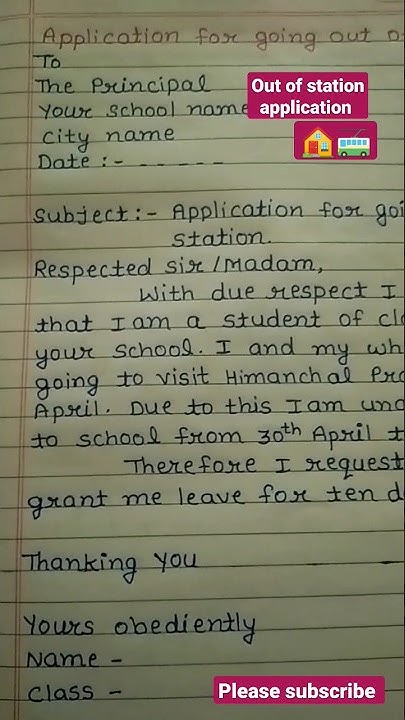 Application for going out o
To
The Principal
Your School name
City name
Date :- - - - - - -
Out of station
application
Subject:- Application for goi
station.
Respected Sir/Madam,
With due respect I
that I am a student of cl
your school. I and my wh
going to visit Himanchal Pr
April. Due to this I am un
to school from 30th April t
Therefore I request
grant me leave for ten d
Thanking You
Yours obediently
Name -
Class -
Please subscribe